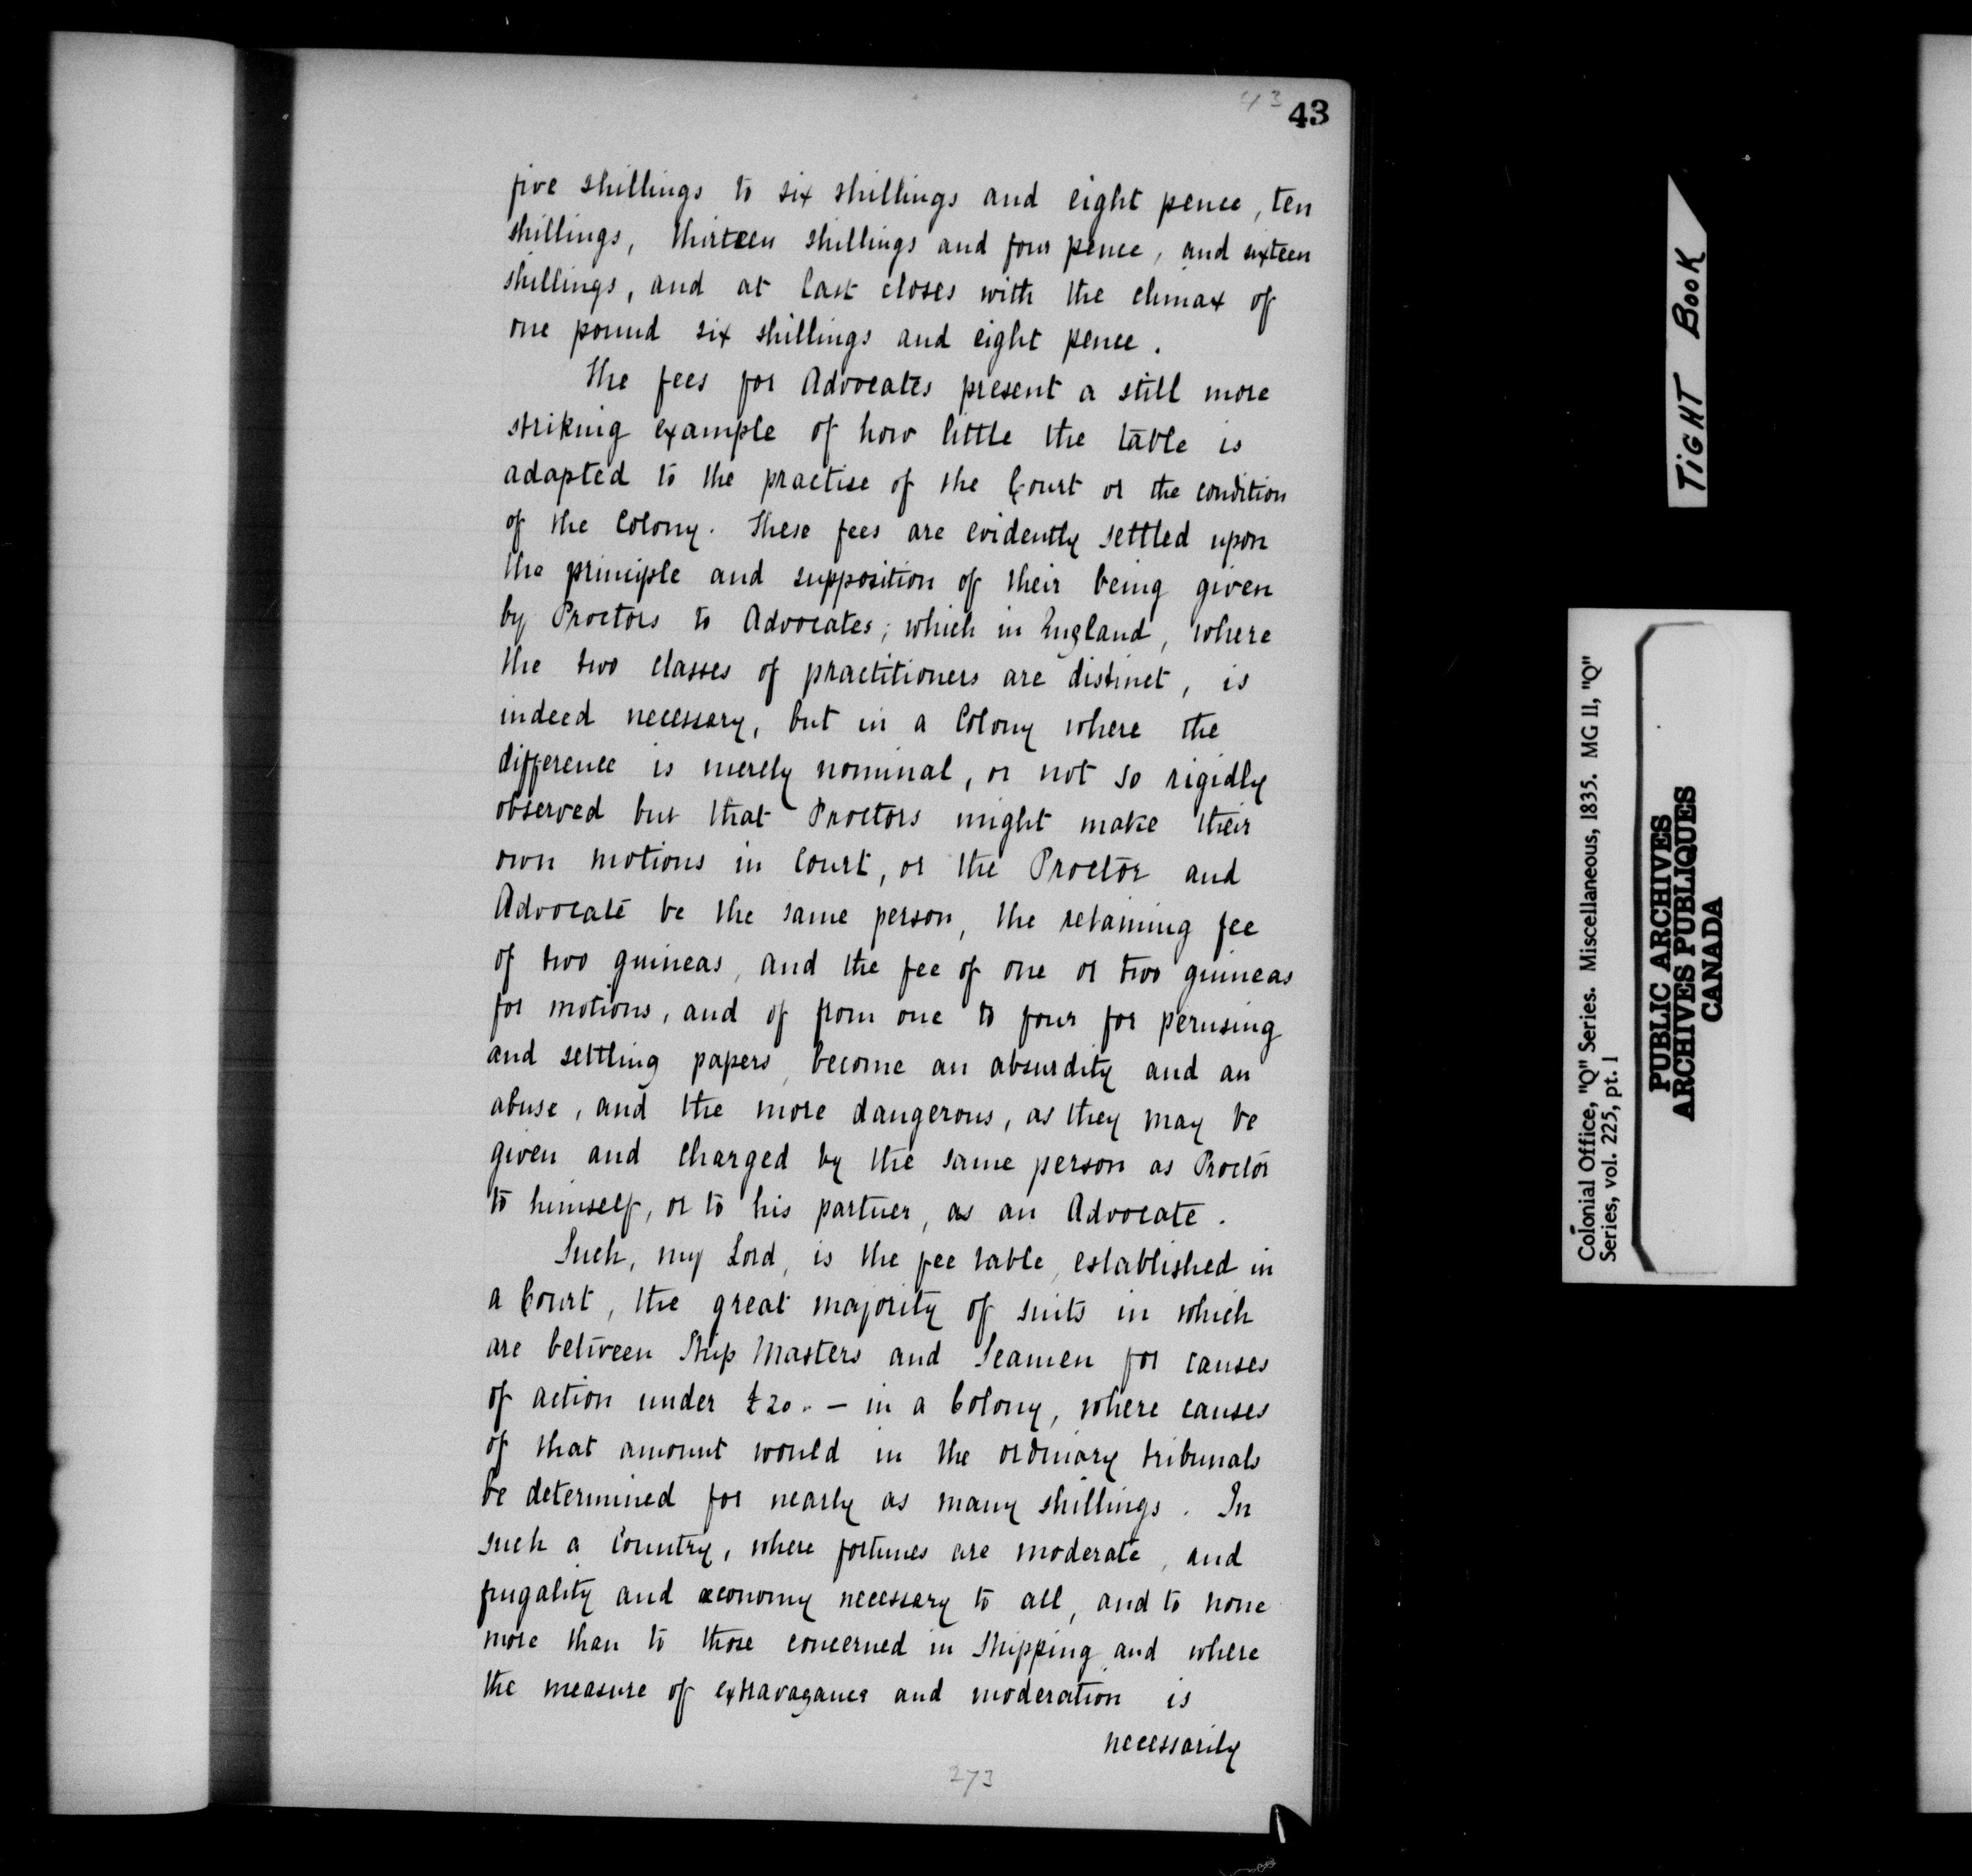 43
43
five shillings to six shillings and eight pence, ten
shillings, thirteen shillings and four pence, and sixteen
shillings, and at last closes with the climax of
one pound six shillings and eight pence.
The fees for Advocates present a still more
striking example of how little the table is
adapted to the practise of the Court or the condition
of the Colony. These fees are evidently settled upon
the principle and supposition of their being given
by Proctors to Advocates; which in England, where
the two classes of practitioners are distinct, is
indeed necessary, but in a Colony where the
difference is merely nominal, or not so rigidly
observed but that Proctors might make their
own motions in Court, or the Proctor and
Advocate be the same person, the retaining fee
of two guineas, and the fee of one or two guineas
for motions, and of from one to four for perusing
and settling papers, become an absurdity and an
abuse, and the more dangerous, as they may be
given and charged by the same person as Proctor
to himself, or to his partner, as an Advocate.
Such, my Lord, is the fee table, established in
a Court, the great majority of suits in which
are between Ship Masters and Seamen for causes
of action under £20.. — in a Colony, where causes
of that amount would in the ordinary tribunals
be determined for nearly as many shillings. In
such a Country, where fortunes are moderate, and
frugality and œconomy necessary to all, and to none
more than to those concerned in Shipping, and where
the measure of extravagance and moderation is
necessarily
273
TIGHT BOOK
Colonial Office, "Q" Series. Miscellaneous, 1835. MG 11, "Q"
Series, vol. 225, pt. 1
PUBLIC ARCHIVES
ARCHIVES PUBLIQUES
CANADA